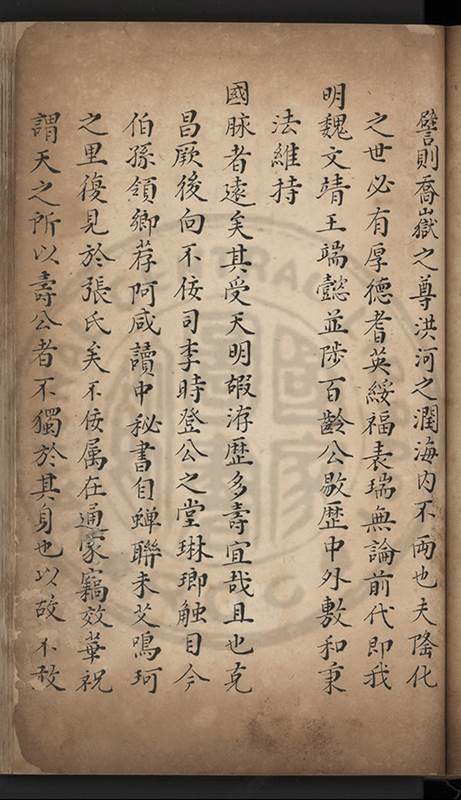 譬則喬嶽之尊洪河之潤海內不兩也夫隆化
之世必有厚德耆英綏福表瑞無論前代即我
明魏文靖王端懿並陟百齡公敭歷中外敷和秉
法維持
國脉者遠矣其受天明嘏洊歷多壽宜哉且也克
昌厥後向不佞司李時登公之堂琳瑯觸目今
伯孫領鄉荐阿咸讀中秘書自蟬聯未艾鳴珂
之里復見於張氏矣不佞属在通家竊效華祝
謂天之所以壽公者不獨於其身也以故不敢